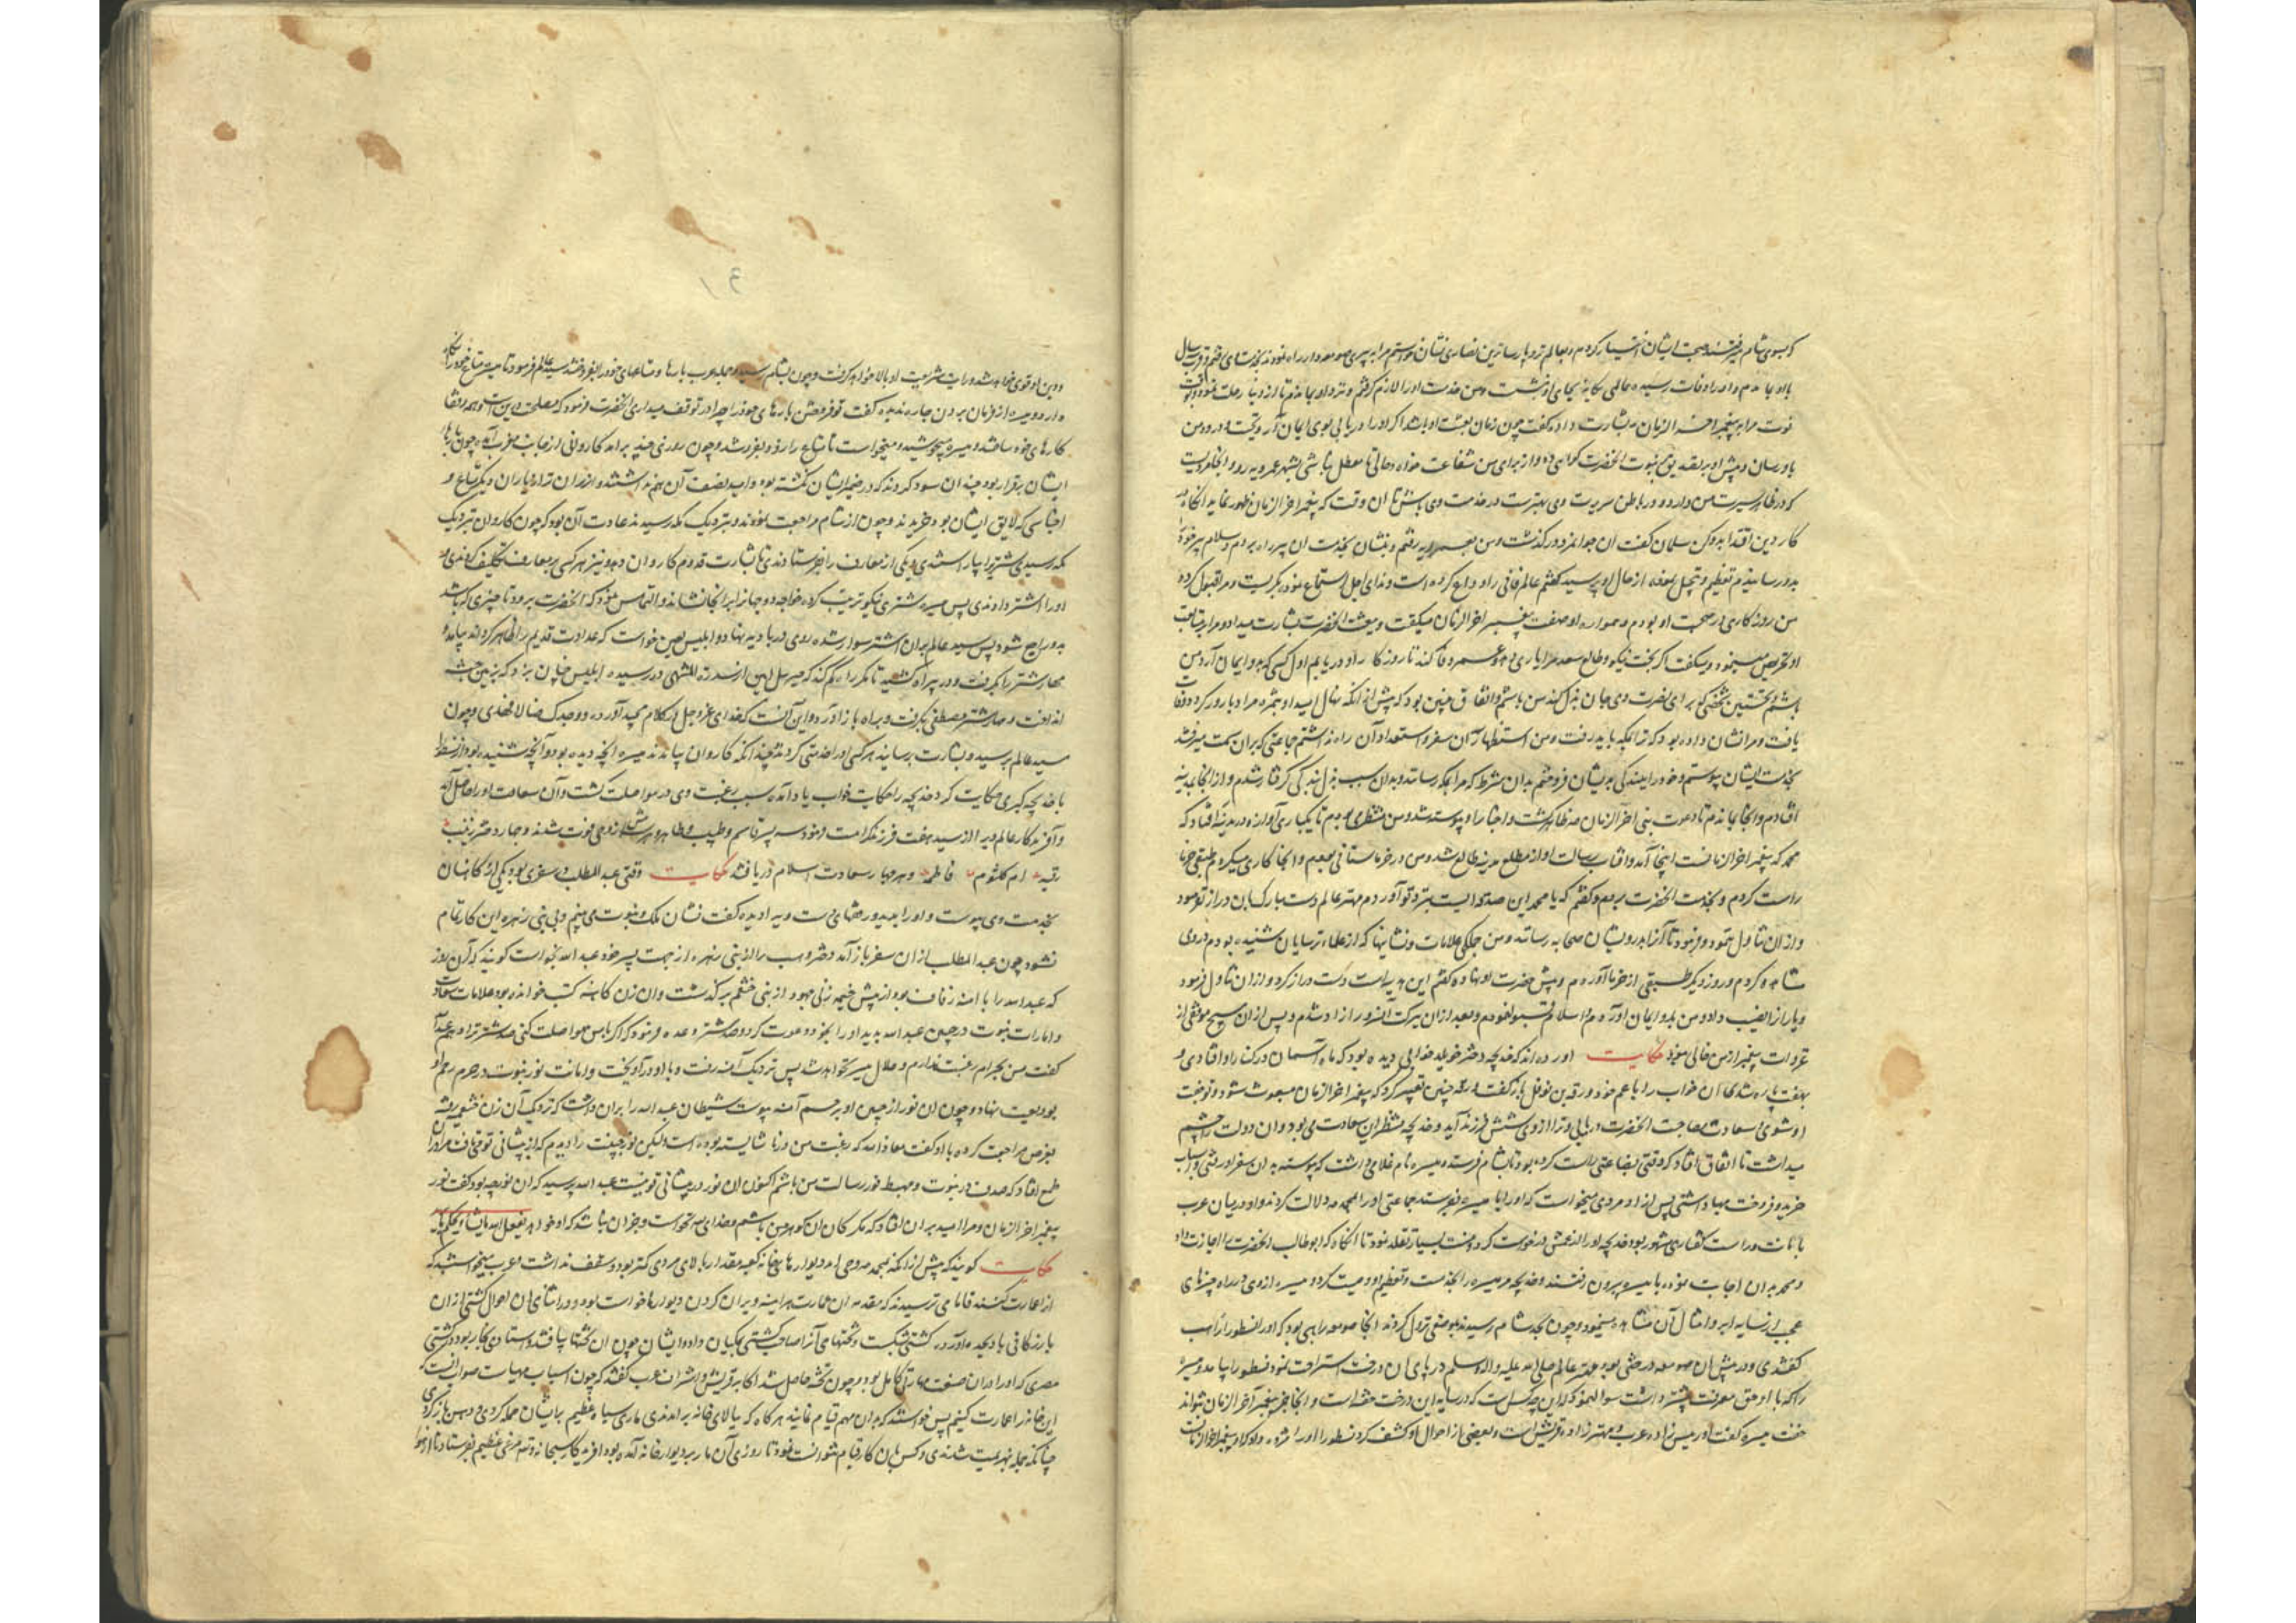 که بسوی شام میرفتند صحبت ایشان اختیار کردم و بعالم ترو پارساترین نصاری نشان خواستم مرا به پیری صومعه دار راه نمودند بخدمت وی رفتم و قرب سال
با او بماندم و او را وفات رسید عالمی بجای او نشست و من خدمت او را لازم گرفتم و نزد او بماندم تا از دنیا رحلت نمود و وقت
فوت مرا به پیغمبر آخر الزمان بشارت داد و گفت چون زمان بعثت او باشد اگر او را دریابی بوی ایمان آر و تحیت و درود من
باو رسان و پیش او بر تصدیق نبوت آنحضرت گواهی ده و از برای من شفاعت خواه و حالی تا معطل نباشی بشهر عموریه رو و آنجا مردیست
که در ظاهر سیرت من دارد و در باطن سریرت وی بهترست در خدمت وی باش تا آن وقت که پیغمبر آخر الزمان ظهور نماید آنگاه در
کار دین اقتدا بدو کن سلمان گفت آن جوانمرد درگذشت و من بعموریه رفتم و بنشان بخدمت آن پیر راه بردم و سلام پیر خود را
بدو رسانیدم تعظیم و تبجیل نموده از حال او پرسید گفتم عالم فانی را وداع کرده است و ندای اجل استماع نموده بگریست و مرا قبول کرد
من روزگاری در صحبت او بودم و همواره او صفت پیغمبر آخر الزمان میگفت و ببعثت آنحضرت بشارت میداد و مرا بر متابعت
او تحریص مینمود و میگفت اگر بخت نیک و طالع سعد مرا یاری دهد و عمر وفا کند تا روزگار او دریابم اول کسی که بدو ایمان آرد من
باشم و نخستین شخصی که برای نصرت وی جان بذل کند من باشم و اتفاق چنین بود که پیش از آنکه نهال امید او بثمره مراد بارور گردد وفات
یافت و مرا نشان داده بود که ترا بمکه باید رفت و من استظهار آن سفر و استعداد آن راه نداشتم جماعتی که بران سمت میرفتند
بخدمت ایشان پیوستم و خود را ببندگی بدیشان فروختم بدان شرط که مرا بمکه رسانند و بدان سبب بذل بندگی گرفتار شدم و از آنجا بمدینه
افتادم و آنجا بماندم تا دعوت نبی آخر الزمان ظاهر گشت و اخبار او پیوسته شد و من منتظر می بودم تا یکباری آوازه در مدینه افتاد که
محمد که پیغمبر آخر الزمانست اینجا آمد و آفتاب رسالت او از مطلع مدینه طالع شد و من در خرماستانی بودم و آنجا کاری میکردم طبقی خرما
راست کردم و بخدمت آنحضرت بردم و گفتم که یا محمد این صدقه ایست بنزد تو آوردم مهتر عالم دست مبارک بدان دراز نفرمود
و از آن تناول ننمود و فرمود تا آنرا بدرویشان صحابه رسانند و من جملگی علامات و نشانیها که از علماء ترسایان شنیده بودم در وی
مشاهده کردم و روز دیگر طبقی از خرما آوردم و پیش حضرت او نهاده گفتم این هدیه است دست دراز کرد و از آن تناول فرمود
و یاران را نصیب داد و من بدو ایمان آوردم و اسلام قبول نمودم و بعد از آن ببرکت آنسرور آزاد شدم و پس از آن هیچ موقفی از
غزوات پیغمبر از من خالی نبود حکایت آورده اند که خدیجه دختر خویلد خوابی دیده بود که ماه آسمان در کنار او افتادی و
بهفت پاره شدی آن خواب را با عم خود ورقه بن نوفل باز گفت ورقه چنین تعبیر کرد که پیغمبر آخر الزمان مبعوث شود و تو جفت
او شوی و سعادت مصاحبت آنحضرت دریابی و ترا از وی شش فرزند آید و خدیجه منتظر آن سعادت می بود و آن دولت را چشم
میداشت تا اتفاق افتاد که وقتی بضاعتی راست کرده بود تا بشام فرستد و میسره نام غلامی داشت که پیوسته بدان سفر او رفتی و اسباب
خرید و فروخت مهیا داشتی پس آزاد مردی میخواست که او را با میسره بفرستد جماعتی او را بمحمد دلالت کردند و او در میان عرب
بامانت و راست گفتاری مشهور بود خدیجه او را از عمش درخواست کرد و منت بسیار تقلد نمود تا آنگاه که ابوطالب آنحضرت را اجازت داد
و محمد بدان اجابت نموده با میسره بیرون رفتند و خدیجه مر میسره را بخدمت و تعظیم او وصیت کرد و میسره از وی در راه چیزهای
عجب از سایه ابر و امثال آن مشاهده مینمود و چون بحد شام رسیدند بموضعی نزول کردند آنجا صومعه راهبی بود که او را نسطور راهب
گفتندی و در پیش آن صومعه درختی بود مهتر عالم صلی الله علیه و اله وسلم در پای آن درخت استراحت نمود نسطور بیامد و میسره
را که با او حق معرفت پیشتر داشت سؤال نمود که آن چه کس است که در سایه این درخت خفته است و آنجا جز پیغمبر آخر الزمان نتواند
خفت میسره گفت او رئیس زاده عرب و مهتر زاده قریش است و بعضی از احوال او کشف کرد نسطور او را مژده داد که او پیغمبر آخر الزمانست
و دین او قوی خواهد شد و رایت شریعت او بالا خواهد گرفت و چون بشام رسیدند جمله عرب بارها و متاعهای خود را بفروختند سید عالم فرمود تا میسره متاع خود را نگاه
دارد و میسره از فرمان بردن چاره ندید گفت تو فروختن بارهای خود را چرا در توقف میداری آنحضرت فرمود که مصلحت درین است و همه رفقا
کارهای خود ساختند و میسره میجوشید و میخواست تا متاع را زود بفروشد و چون روزی چند برآمد کاروانی از جانب مغرب آمد چون بارها
ایشان برقرار بود چندان سود کردند که در ضمیر ایشان نگشته بود و امید نصف آن هم نداشتند و ازان ترادیاران دیگر متاع و
اجناسی که لایق ایشان بود خریدند و چون از شام مراجعت نمودند و بنزدیک مکه رسیدند عادت آن بود که چون کاروان نزدیک
مکه رسیدی شتری را بیاراستندی و یکی از معارف را بفرستادندی تا بشارت قدوم کاروان دهد و نیز هر کسی بر معارف تکلیف کردندی و
او را اشتر دادندی پس میسره شتری نیکو ترتیب کرد و خواجه دو جهان را بر آنجا نشاند و التماس نمود که آنحضرت برود تا چیزی که باشد
بدو راجع شود پس سید عالم بران اشتر سوار شده روی در بادیه نهاد و ابلیس لعین خواست که عداوت قدیم را ظاهر گرداند بیامد و
مهار شتر را بگرفت و در بیراه کشید تا مگر راه گم کند که جبرئیل امین از سدرة المنتهی در رسید و ابلیس را چنان بزد که بزمین حبشه
انداخت و مهار شتر مصطفی بگرفت و براه باز آورد و این آنست که خدای عز و جل در کلام مجید آورد و وجدک ضالا فهدی و چون
سید عالم برسید و بشارت برسانید هر کسی او را خدمتی کردند چندانکه کاروان بیامدند میسره آنچه دیده بود و آنچه شنیده بود از نسطور
با خدیجه کبری حکایت کرد خدیجه را حکایات خواب یاد آمد و سبب رغبت وی در مواصلت گشت و آن سعادت او را حاصل آمد
و آفریدگار عالم ویرا از سید هفت فرزند کرامت فرمود سه پسر قاسم و طیب و طاهر و هر سه پیش از وحی فوت شدند و چهار دختر زینب
رقیه ام کلثوم فاطمه و هر چهار سعادت اسلام دریافتند حکایت وقتی عبدالمطلب در سفری بود یکی از کاهنان
بخدمت وی پیوست و او را بدید و رخهای دست وی دید گفت نشان ملک و نبوت می بینم و بی بنی زهره این کار تمام
نشود چون عبدالمطلب ازان سفر باز آمد دختر وهب را از بنی زهره از بهر پسر خود عبدالله بخواست گویند که آن روز
که عبدالله را با آمنه زفاف بود از پیش خیمه زنی یهود از بنی خثعم برگذشت و آن زن کاهنه کتب خوانده بود علامات سعادت
و امارات نبوت در جبین عبدالله بدید او را بخود دعوت کرد و صد شتر وعده فرمود که اگر با من مواصلت کنی صد شتر ترا دهم عبدالله
گفت من بحرام رغبت ندارم و حلال میسر نخواهد شد پس نزدیک آمنه رفت و با او در آویخت و امانت نور نبوت در حرم رحم او
بودیعت نهاد و چون آن نور از جبین او برحم آمنه پیوست شیطان عبدالله را بران داشت که نزدیک آن زن خثعمیه رفته
بغرض مراجعت کرده با او گفت معاذ الله که رغبت من در ناشایسته بوده است ولیکن نور جبینت را دیدم که از پیشانی تو می تافت مرا دران
طمع افتاد که صدف در نبوت و مهبط نور رسالت من باشم اکنون آن نور در پیشانی تو نیست عبدالله پرسید که آن نور چه بود گفت نور
پیغمبر آخر الزمان و مرا امید بران افتاد که مگر کان آن گوهر من باشم و خدای نخواست و جز آن نباشد که او خواهد یفعل الله ما یشاء و یحکم ما یرید
حکایت گویند که پیش از آنکه بمحمد وحی آمد دیوارهای خانه کعبه مقدار بالای مردی کمتر بود و سقف نداشت و عرب میخواستند که
آنرا عمارت کنند فاما می ترسیدند که مقدمه آن عمارت هر آینه ویران کردن دیوارها خواست بود و در اثنای آن احوال کشتی از آن
بازرگانی باد بجده آورد و کشتی بشکست و تختهای آنرا صاحب کشتی بمکیان داد و ایشان چون آن تختها یافتند و استادی نجار بود در کشتی
مصری که او را در آن صنعت مهارتی کامل بود و چون تخته حاصل شد اکابر قریش و اشراف عرب گفتند که چون اسباب مهیاست صواب آنست که
این خانه را عمارت کنیم پس خواستند که بدان مهم قیام نمایند هرگاه که ببالای خانه برآمدندی ماری سیاه عظیم بر ایشان حمله کردی و دهن باز کردی
چنانکه جمله بهزیمت شدندی و کس بدان کار قیام نتوانست نمود تا روزی آن مار بر دیوار خانه آمده بود آفریدگار سبحانه و تعالی مرغی عظیم بفرستاد تا از هوا